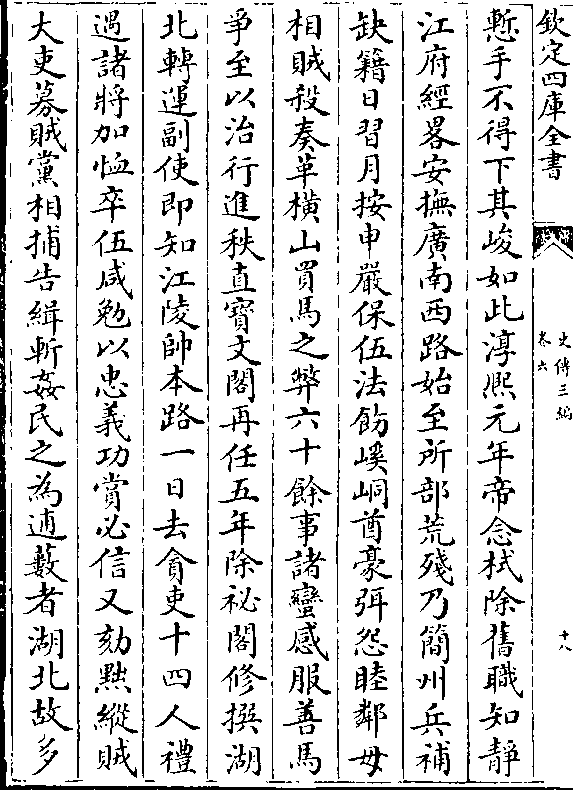 欽定四庫全書
史傳三編
卷六
十八
慙手不得下其峻如此淳熙元年帝念栻除舊職知靜
江府經畧安撫廣南西路始至所部荒殘乃簡州兵補
缺籍日習月按申嚴保伍法飭峒酋豪弭怨睦鄰毋
相賊殺奏革橫山買馬之弊六十餘事諸蠻感服善馬
爭至以治行進秩直寶文閣再任五年除祕閣修撰湖
北轉運副使即知江陵帥本路一日去貪吏十四人禮
遇諸將加恤卒伍咸勉以忠義功賞必信又劾黜縱賊
大吏募賊黨相捕告緝斬姦民之為逋藪者湖北故多